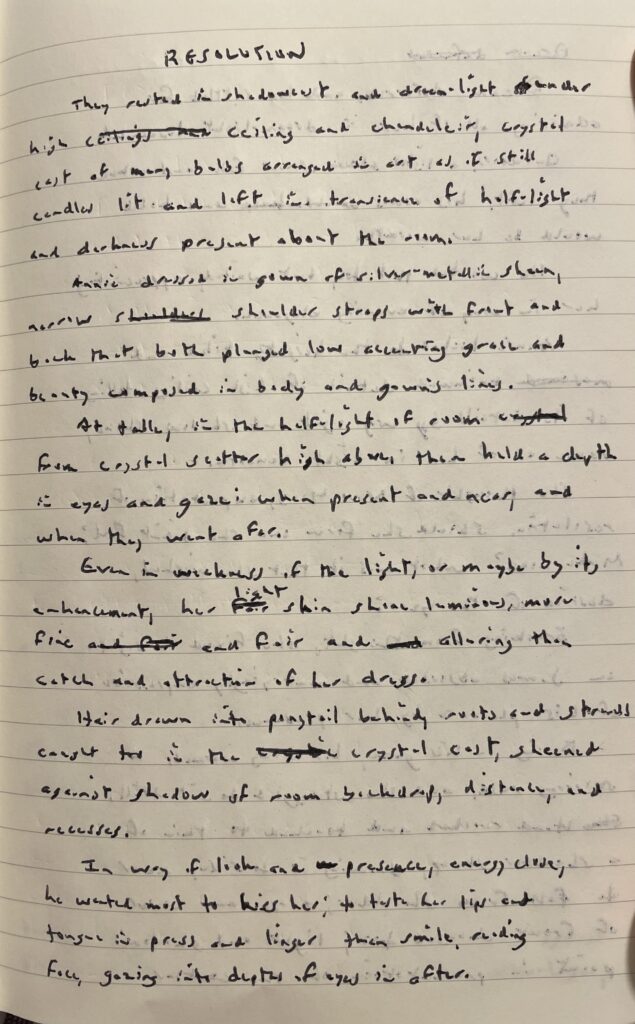 RESOLUTION
They rested in shadowcast and dream-light under
high ceilings then ceiling and chandelier, crystal
cast of many bulbs arranged in art as if still
candles lit and left in transience of half-light
and darkness present about the room.
Annie dressed in gown of silver-metallic sheen,
narrow shoulder straps with front and
back that both plunged low accenting grace and
beauty composed in body and gown's lines.
At table, in the half-light of room crystal
from crystal scatter high above, them held a depth
in eyes and gaze; when present and near, and
when they went afar.
Even in weakness of the light, or maybe by its
light
enhancement, her fair skin shone luminous, more
fine and fair and fair and and alluring than
catch and attraction of her dress.
Hair drawn into ponytail behind, roots and strands
caught in the crystal crystal cast, sheened
against shadow of room backdrop, distance, and
recesses.
In way of look and presence, energy close,
he wanted most to kiss her; to taste her lips and
tongue in press and linger then smile, reading
face, gazing into depths of eyes in after.